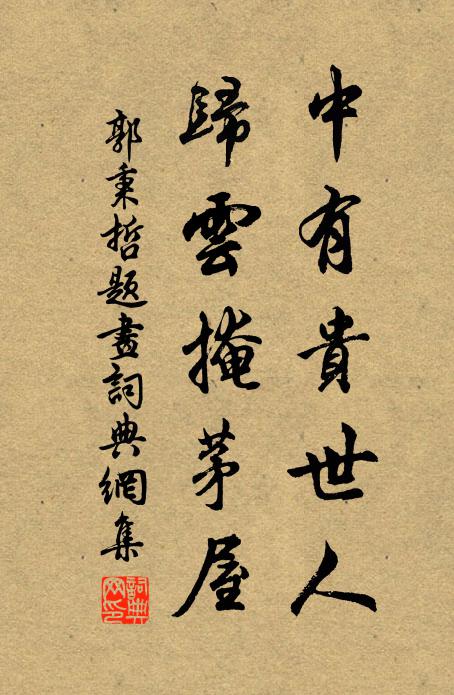 中有貴世人
歸雲掩茅屋
郭秉哲題畫詞典網集
詞典網印